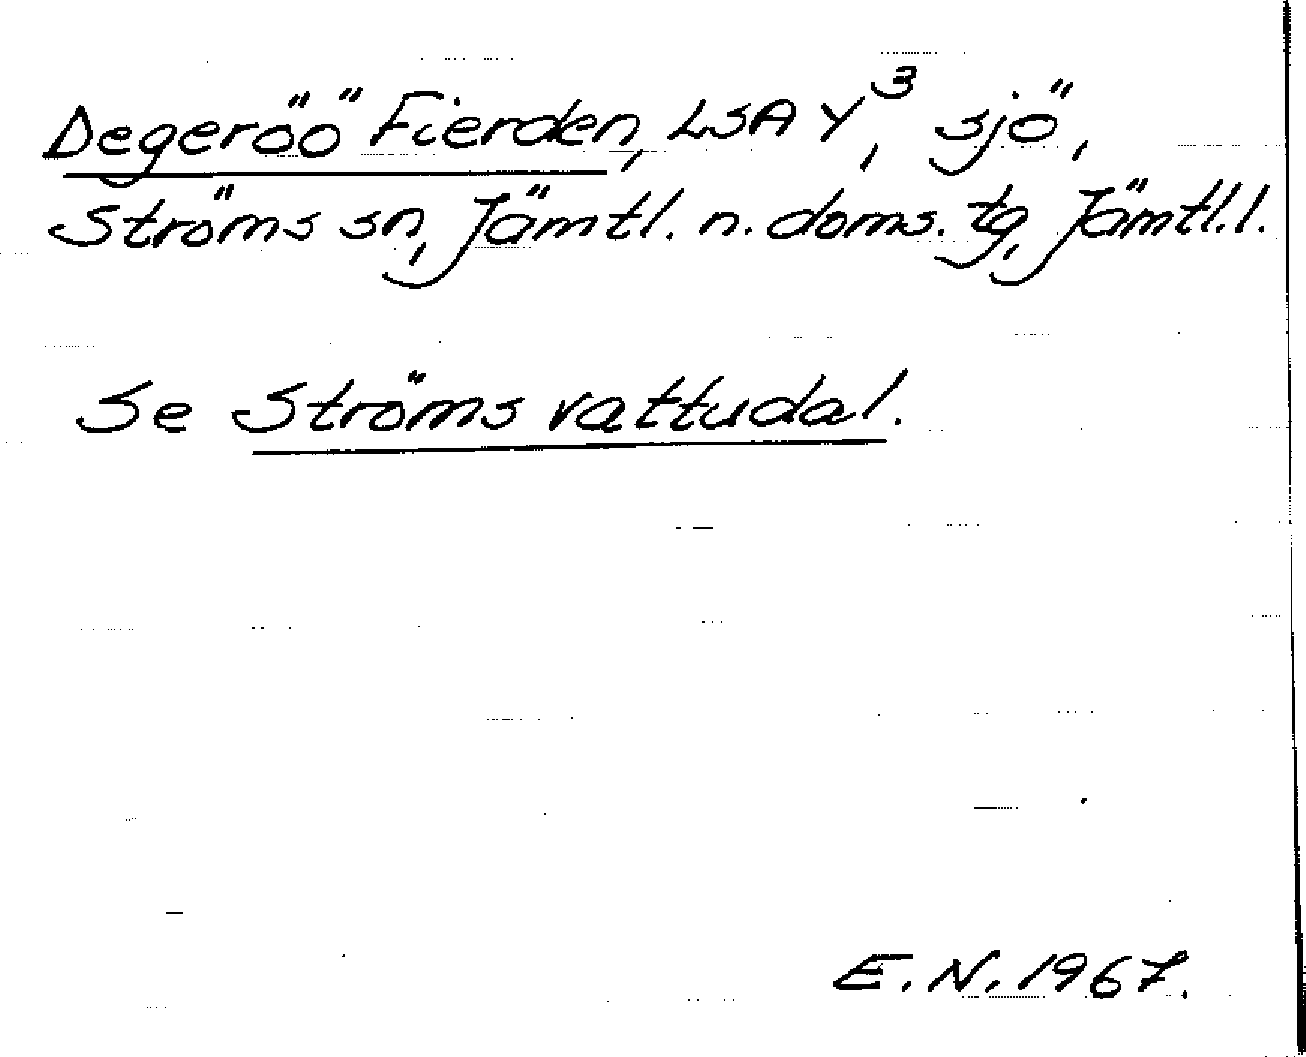 Degeröö Fierden, LSA Y³, sjö,
Ströms sn, Jämtl. n. doms. tg, Jämtl. l.
Se Ströms vattudal.
E.N. 1967.